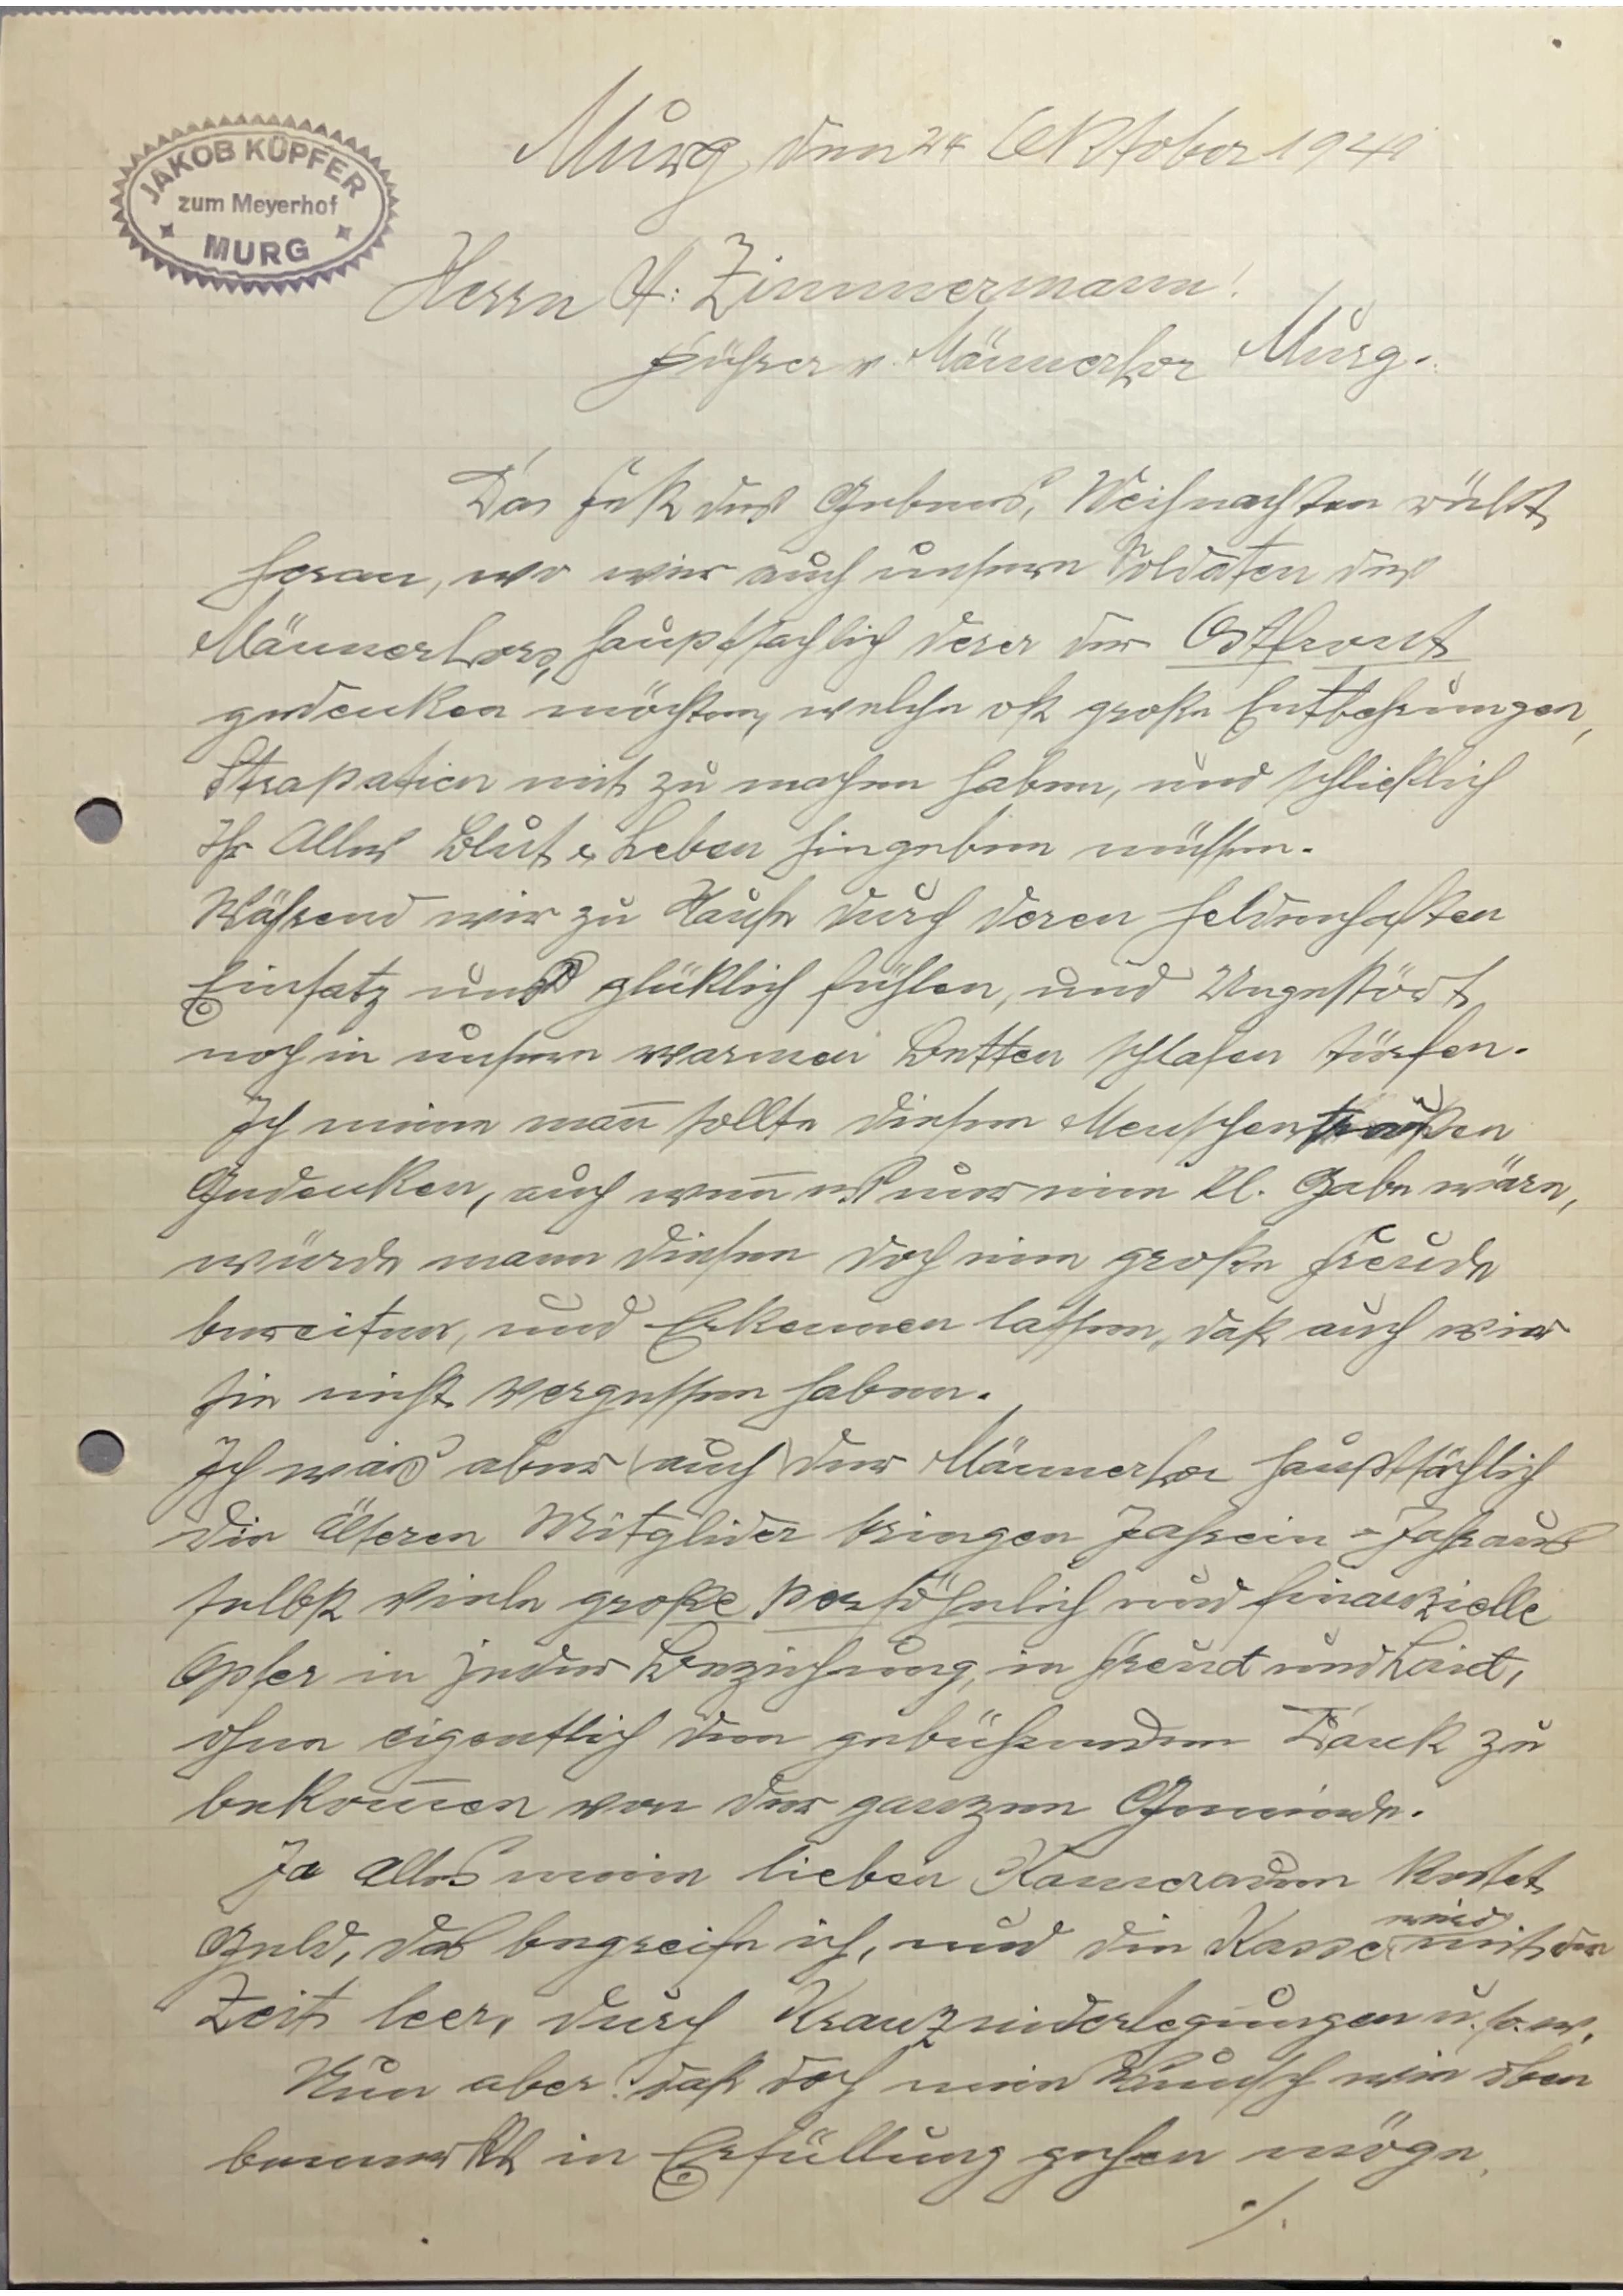 JAKOB KÜPFER
zum Meyerhof
MURG
Murg, den 24 Oktober 194
Herrn A: Zimmermann!
Führer v. Männerchor Murg.
Das Fest des Gebens, Weihnachten rückt
heran, wo wir auch unsern Soldaten des
Männerchors, hauptsachlich derer der Ostfront
gedenken möchten, welche oft große Entbehrungen,
Strapatien mit zu machen haben, und schließlich
Ihr Alles Blut & Leben hingeben müssen.
Während wir zu Hause durch deren heldenhaften
Einsatz uns glüklich fühlen, und Ungestört
noch in unsern warmen Betten schlafen törfen.
Ich meine man̄ sollte diesen Menschen
Gedenken, auch wen̄ es nur eine kl. Gabe wäre,
würde mann diesen doch eine große Freude
bereiten, und Erkennen lassen, daß auch wir
sie nicht vergessen haben.
Ich wais aber (auch) der Männerchor hauptsächlich
die älteren Mitglider bringen Jahrein - Jahraus
selbst viele große persöhnlich und finanzielle
Opfer in jeder Beziehung, in Freud und Laid,
ohne eigentlich den gebührenden Dank zu
bekom̄en von der ganzen Gemeinde.
Ja alles meine lieben Kameraden kostet
Geld, das begreife ich, und die Kasse wird mit der
Zeit leer, durch Kranzniderlegungen u. s. w.
Nun aber! daß doch mein Wunsch wie oben
bemerkt in Erfüllung gehen möge,
./.